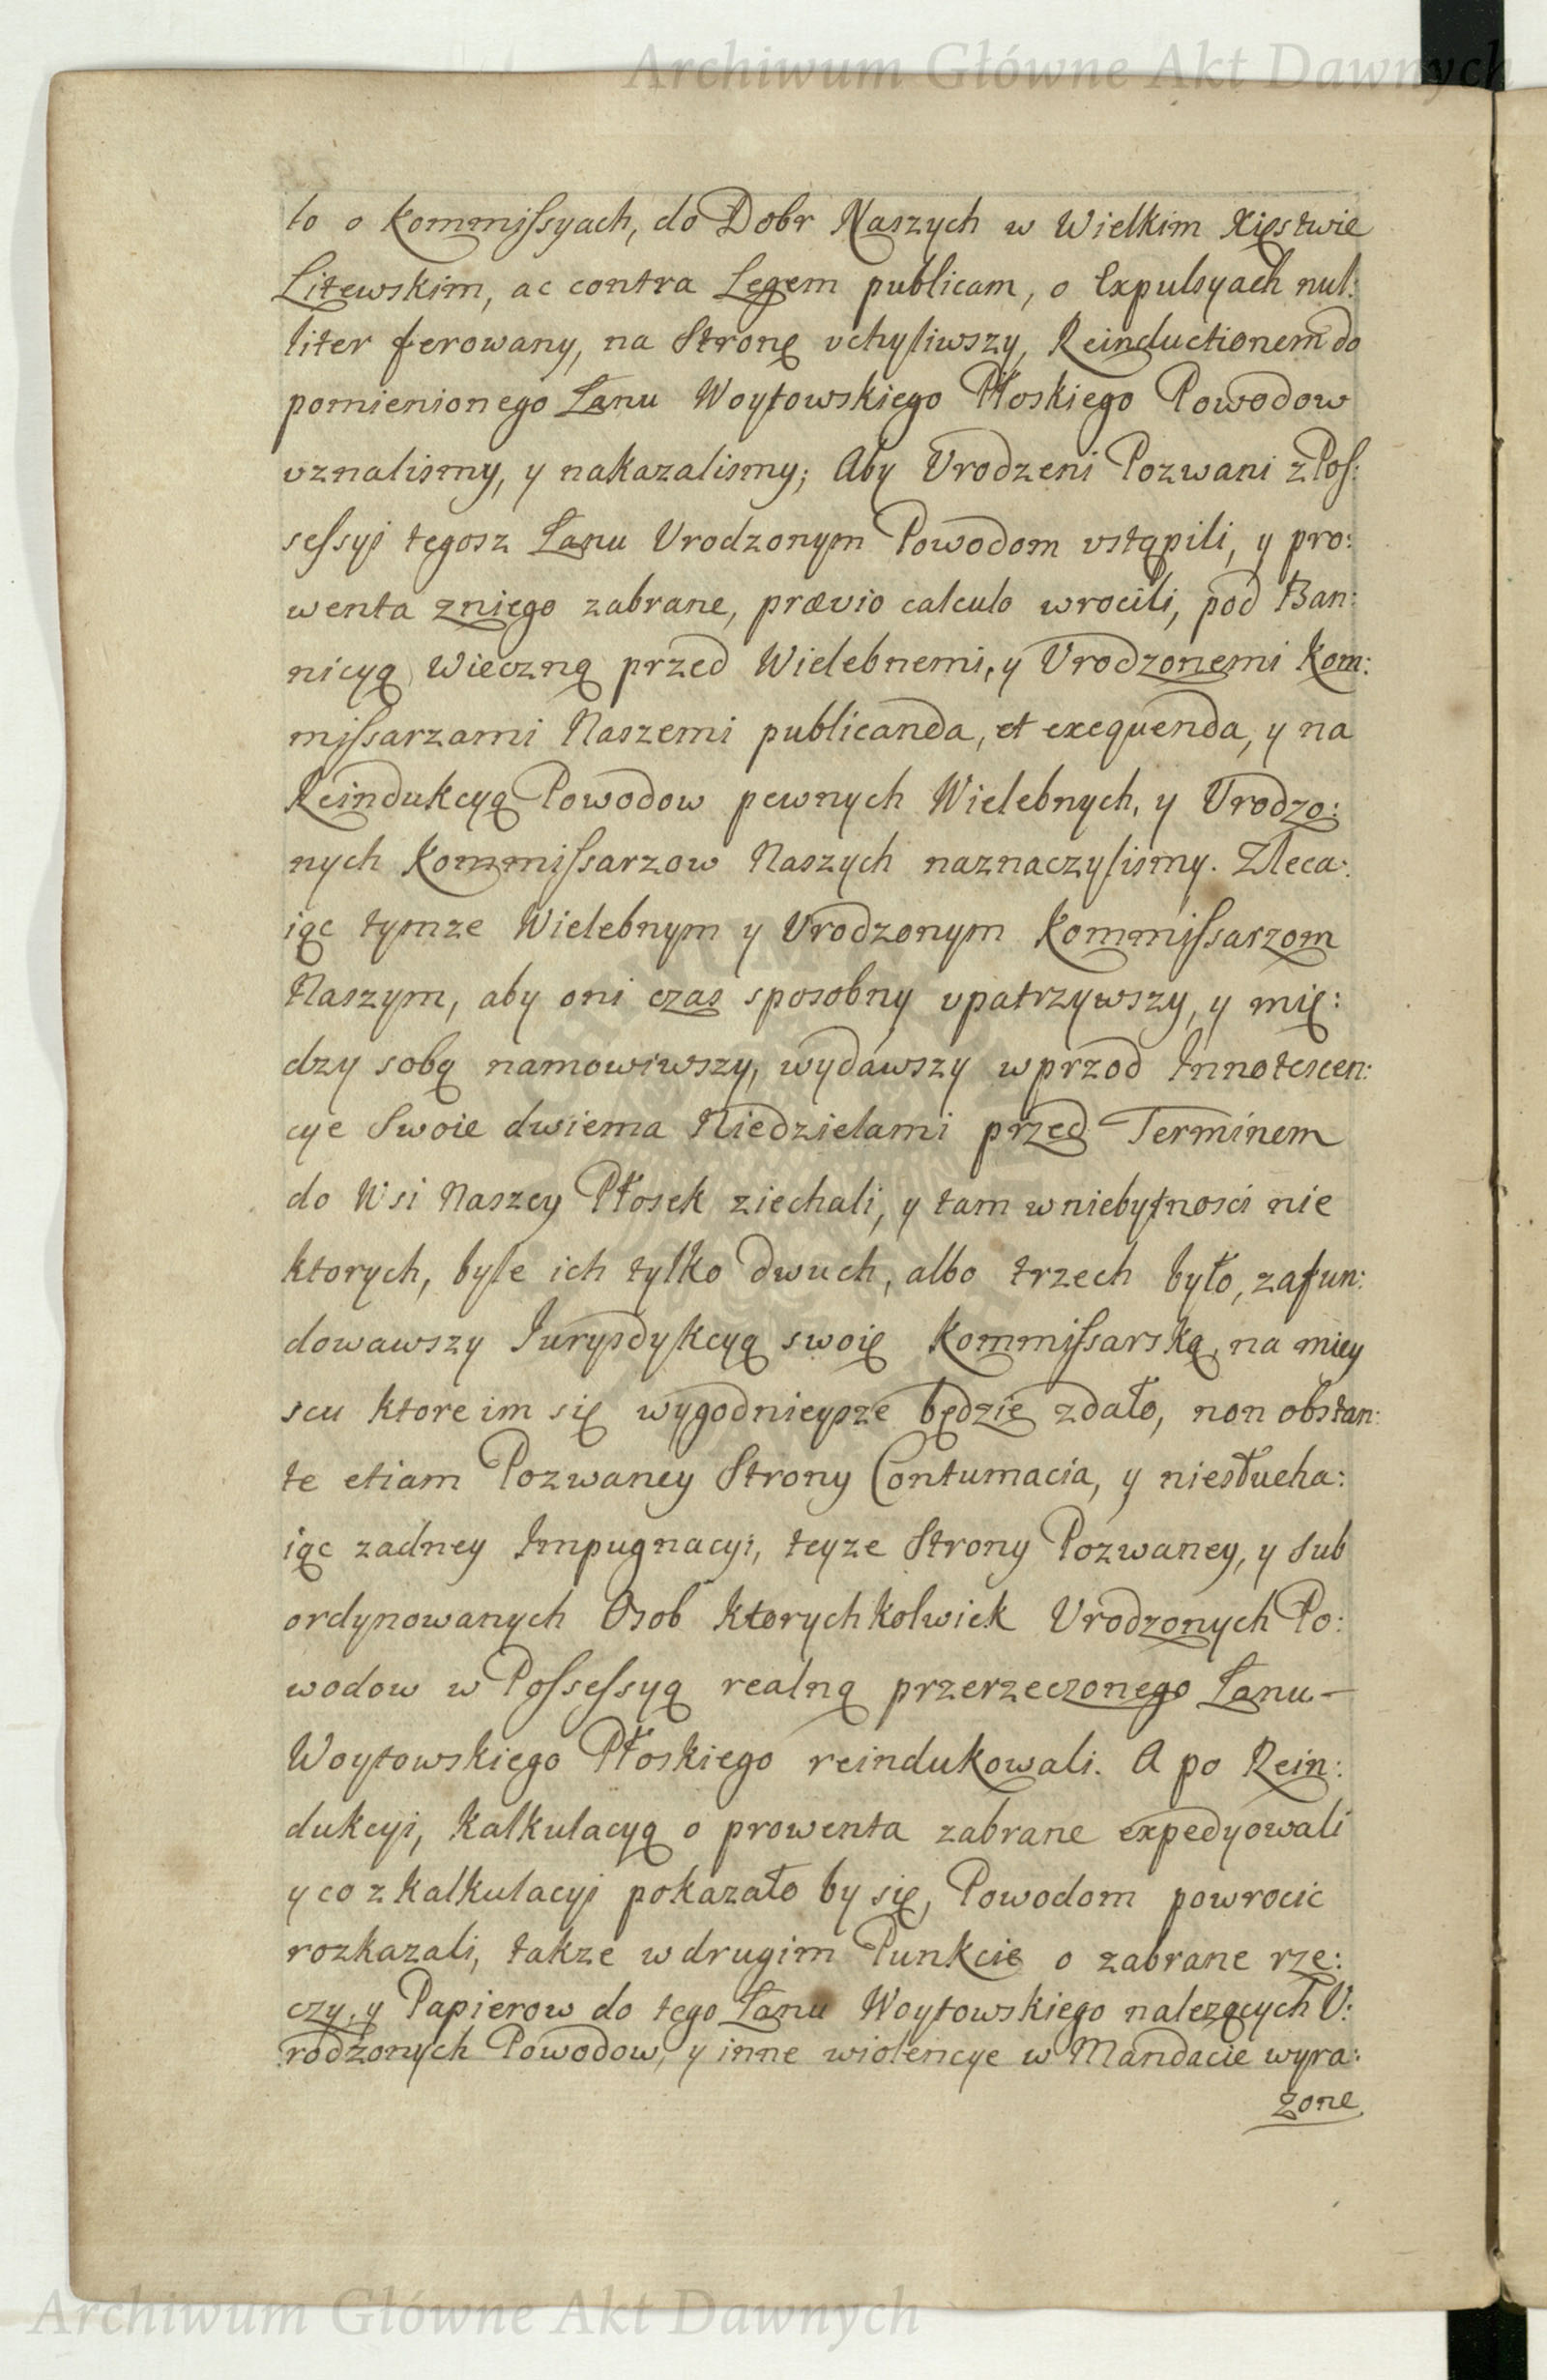 Archiwum Główne Akt Dawnych
to o Kommissyach, do Dobr Naszych w Wielkim Xięstwie
Litewskim, ac contra Legem publicam, o Expulsyach nul:
liter ferowany, na Stronę vchyliwszy, Reinductionem do
pomienionego Łanu Woytowskiego Płoskiego Powodow
vznalismy, y nakazalismy; Aby Vrodzeni Pozwani z Pos:
sessyi tegosz Łanu Vrodzonym Powodom vstąpili, y pro:
wenta z niego zabrane, prævio calculo wrocili, pod Ban:
nicyą Wieczną przed Wielebnemi, y Vrodzonemi Kom:
missarzami Naszemi publicanda, et exequenda, y na
Reindukcyą Powodow pewnych Wielebnych, y Vrodzo:
nych Kommissarzow Naszych naznaczylismy. Zleca:
iąc tymze Wielebnym y Vrodzonym Kommissarzom
Naszym, aby oni czas sposobny vpatrzywszy, y mię:
dzy sobą namowiwszy, wydawszy wprzod Innotescen:
cye Swoie dwiema Niedzielami przed Terminem
do Wsi Naszey Płosek ziechali, y tam w niebytnosci nie
ktorych, byle ich tylko dwuch, albo trzech było, zafun:
dowawszy Jurysdykcyą swoię Kommissarską, na miey
scu ktore im się wygodnieysze będzie zdało, non obstan:
te etiam Pozwaney Strony Contumacia, y niesłucha:
iąc zadney Impugnacyi, teyze Strony Pozwaney, y sub
ordynowanych Osob ktorychkolwiek Vrodzonych Po:
wodow w Possessyą realną przerzeczonego Łanu –
Woytowskiego Płoskiego reindukowali. A po Rein:
dukcyi, Kalkulacyą o prowenta zabrane expedyowali
y co z Kalkulacyi pokazało by się, Powodom powrocic
rozkazali, takze w drugim Punkcie o zabrane rze:
czy, y Papierow do tego Łanu Woytowskiego nalezących V:
rodzonych Powodow, y inne wiolencye w Mandacie wyra:
zone
Archiwum Główne Akt Dawnych